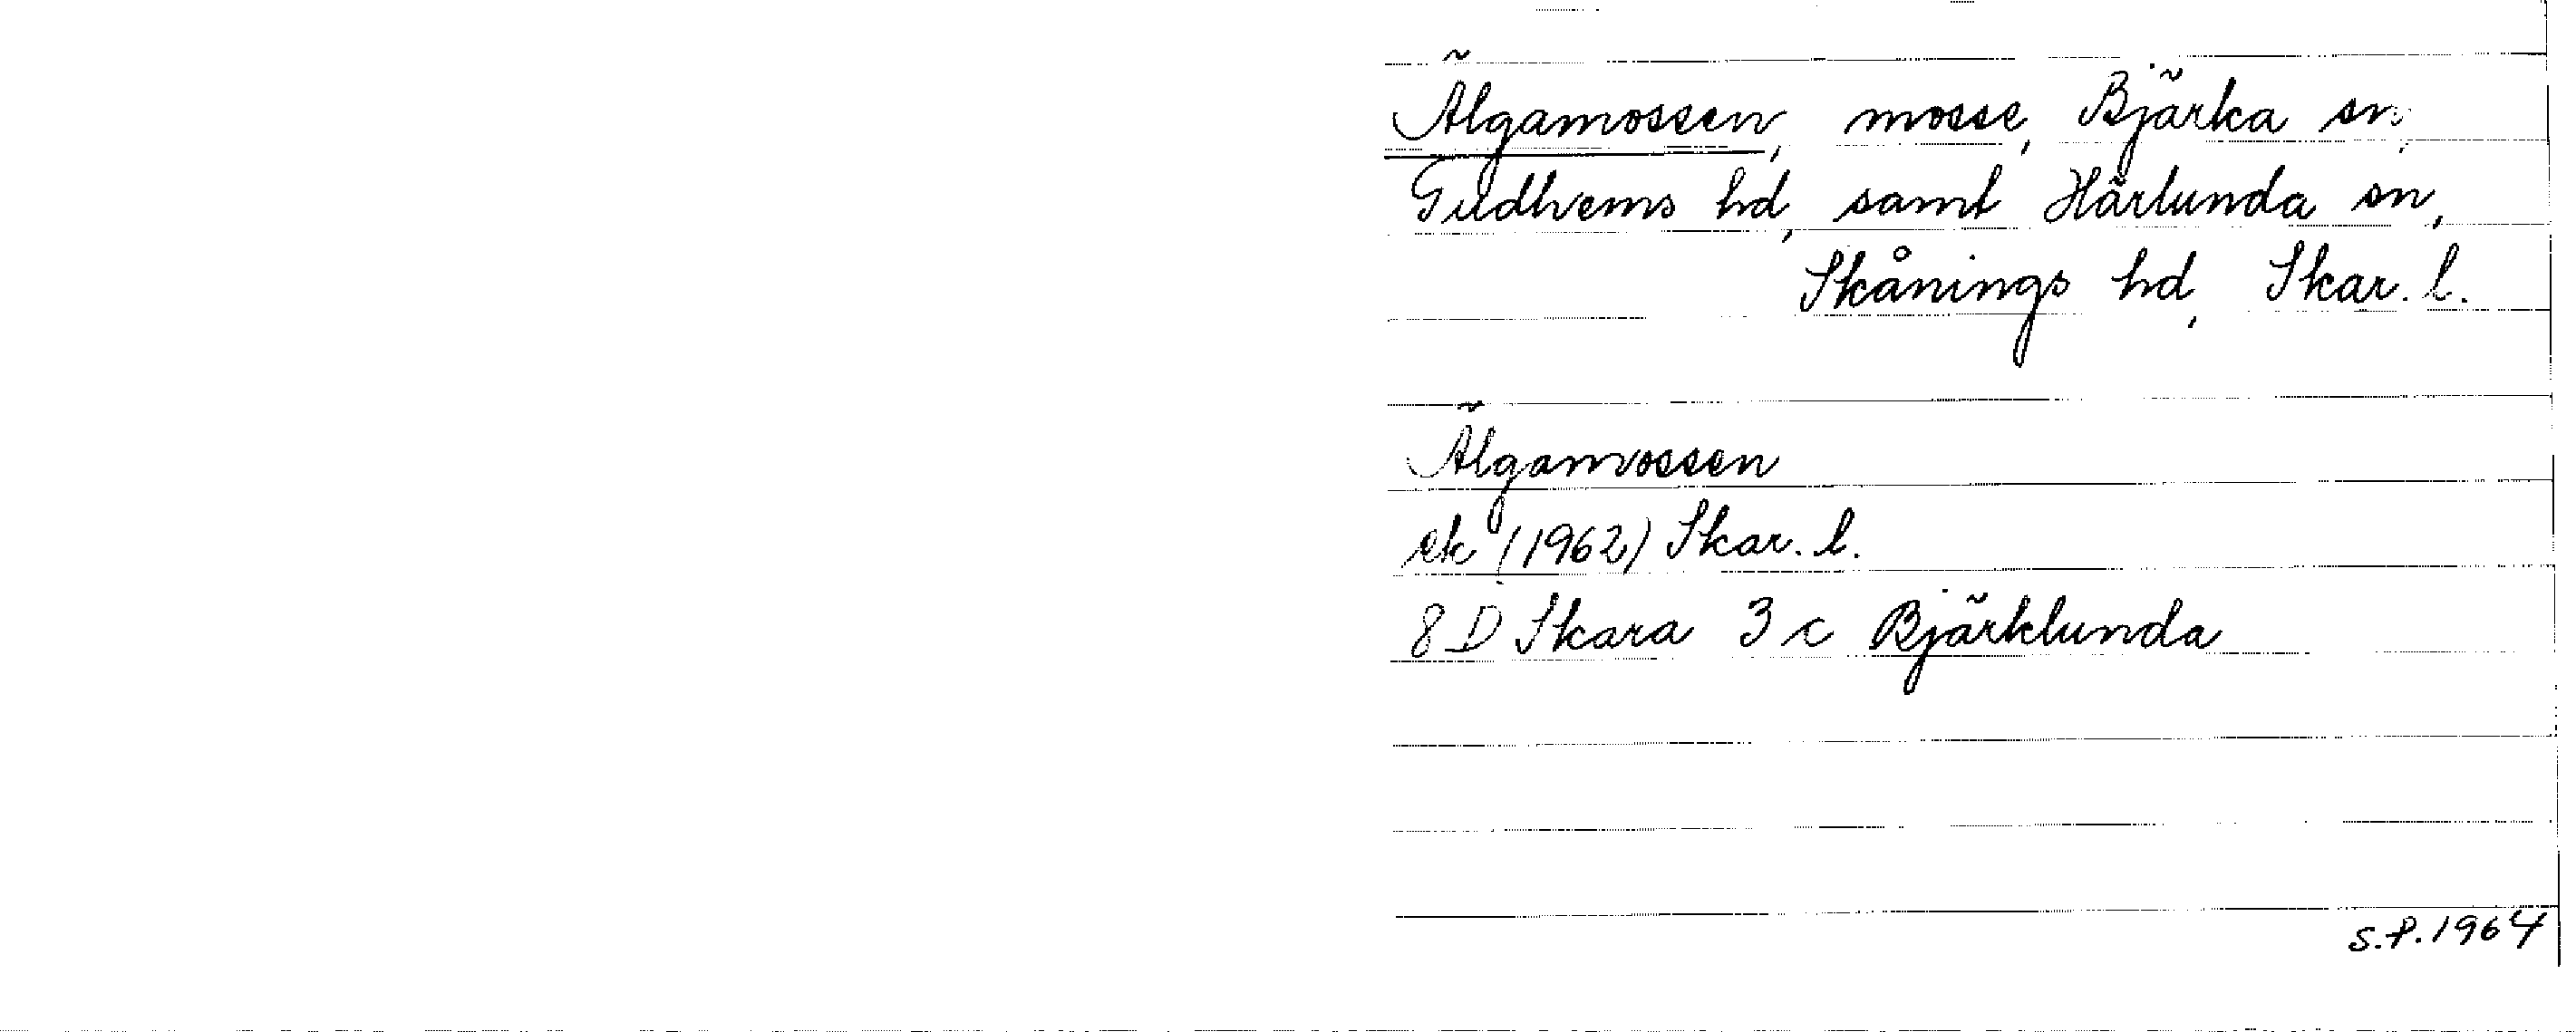 Älgamossen, mosse, Bjärka sn,
Gudhems hd, samt Härlunda sn,
Skånings hd, Skar. l.
Älgamossen
ek (1962) Skar. l.
8 D Skara 3 c Bjärklunda
S.P. 1964